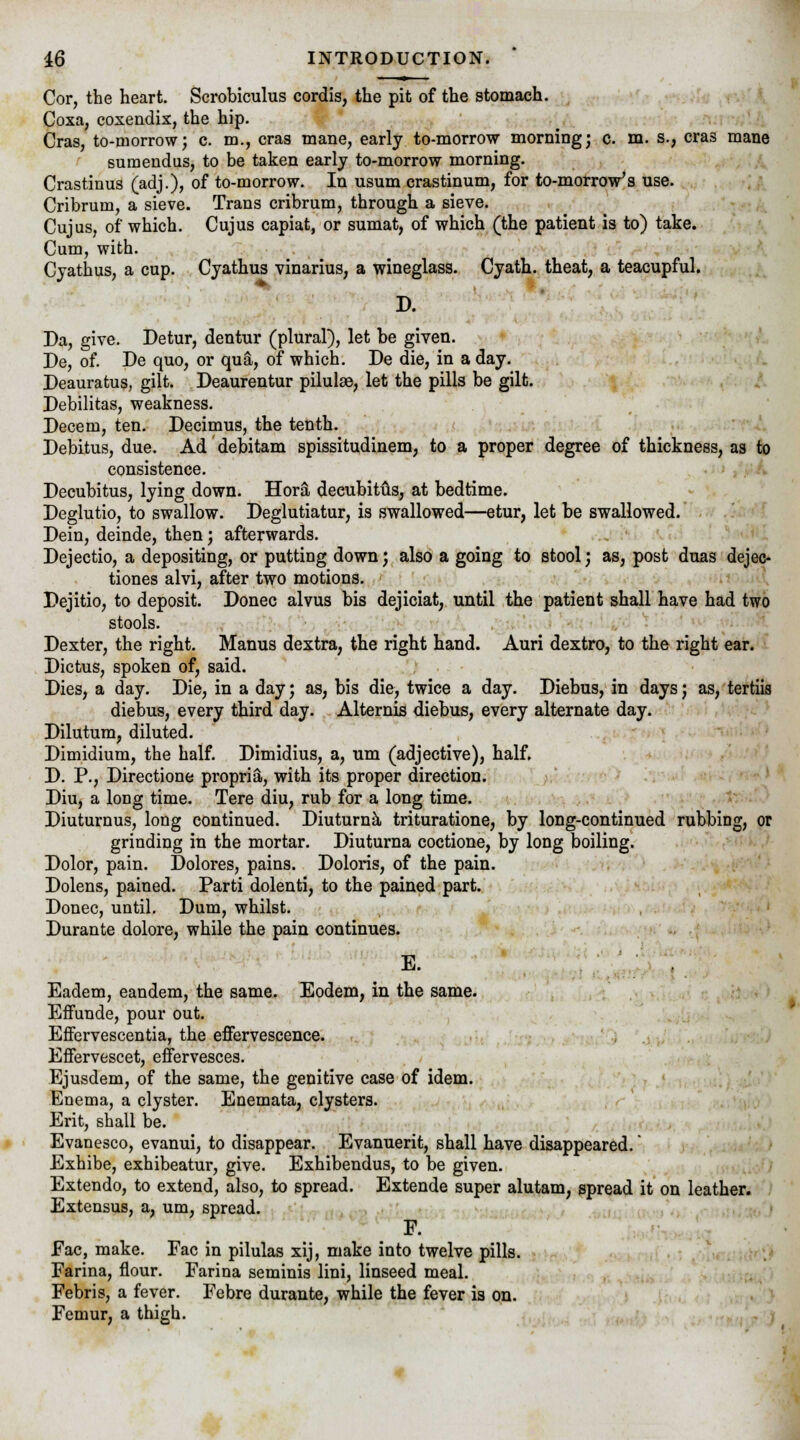 46 INTRODUCTION.
Cor, the heart. Scrobiculus cordis, the pit of the stomach.
Coxa, coxendix, the hip.
Cras, to-morrow; c. m., cras mane, early to-morrow morning; c. m. s., cras mane
sumendus, to be taken early to-morrow morning.
Crastinus (adj.), of to-morrow. In usum crastinum, for to-morrow's use.
Cribrum, a sieve. Trans cribrum, through a sieve.
Cujus, of which. Cujus capiat, or sumat, of which (the patient is to) take.
Cum, with.
Cyathus, a cup. Cyathus vinarius, a wineglass. Cyath. theat, a teacupful.
D.
Da, give. Detur, dentur (plural), let be given.
De, of. De quo, or quâ, of which. De die, in a day.
Deauratus, gilt. Deaurentur pilulæ, let the pills be gilt.
Debilitas, weakness.
Decem, ten. Decimus, the tenth.
Debitus, due. Ad debitam spissitudinem, to a proper degree of thickness, as to
consistence.
Decubitus, lying down. Horâ decubitûs, at bedtime.
Deglutio, to swallow. Deglutiatur, is swallowed—etur, let be swallowed.
Dein, deinde, then; afterwards.
Dejectio, a depositing, or putting down; also a going to stool; as, post duas dejec-
tiones alvi, after two motions.
Dejitio, to deposit. Donec alvus bis dejiciat, until the patient shall have had two
stools.
Dexter, the right. Manus dextra, the right hand. Auri dextro, to the right ear.
Dictus, spoken of, said.
Dies, a day. Die, in a day; as, bis die, twice a day. Diebus, in days; as, tertiis
diebus, every third day. Alternis diebus, every alternate day.
Dilutum, diluted.
Dimidium, the half. Dimidius, a, um (adjective), half.
D. P., Directione propriâ, with its proper direction.
Diu, a long time. Tere diu, rub for a long time.
Diuturnus, long continued. Diuturnà trituratione, by long-continued rubbing, or
grinding in the mortar. Diuturna coctione, by long boiling.
Dolor, pain. Dolores, pains. Doloris, of the pain.
Dolens, pained. Parti dolenti, to the pained part.
Donec, until. Dum, whilst.
Durante dolore, while the pain continues.
E.
Eadem, eandem, the same. Eodem, in the same.
Effunde, pour out.
Effervescentia, the effervescence.
Effervescet, effervesces.
Ejusdem, of the same, the genitive case of idem.
Enema, a clyster. Enemata, clysters.
Erit, shall be.
Evanesco, evanui, to disappear. Evanuerit, shall have disappeared.
Exhibe, exhibeatur, give. Exhibendus, to be given.
Extendo, to extend, also, to spread. Extende super alutam, spread it on leather.
Extensus, a, um, spread.
F.
Fac, make. Fac in pilulas xij, make into twelve pills.
Farina, flour. Farina seminis lini, linseed meal.
Febris, a fever. Febre durante, while the fever is on.
Femur, a thigh.